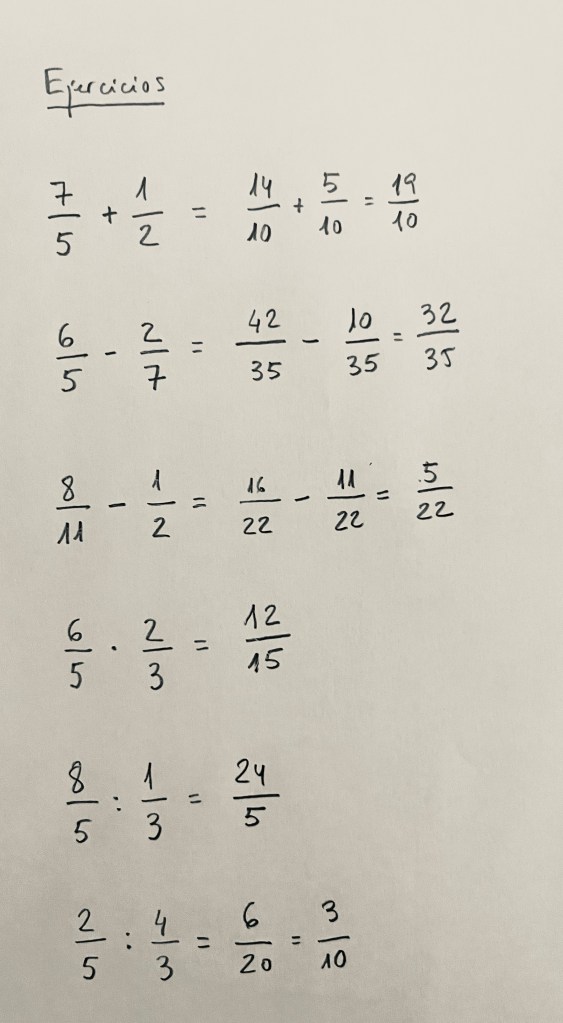 Ejercicios
7/5 + 1/2 = 14/10 + 5/10 = 19/10
6/5 - 2/7 = 42/35 - 10/35 = 32/35
8/11 - 1/2 = 16/22 - 11/22 = 5/22
6/5 · 2/3 = 12/15
8/5 : 1/3 = 24/5
2/5 : 4/3 = 6/20 = 3/10